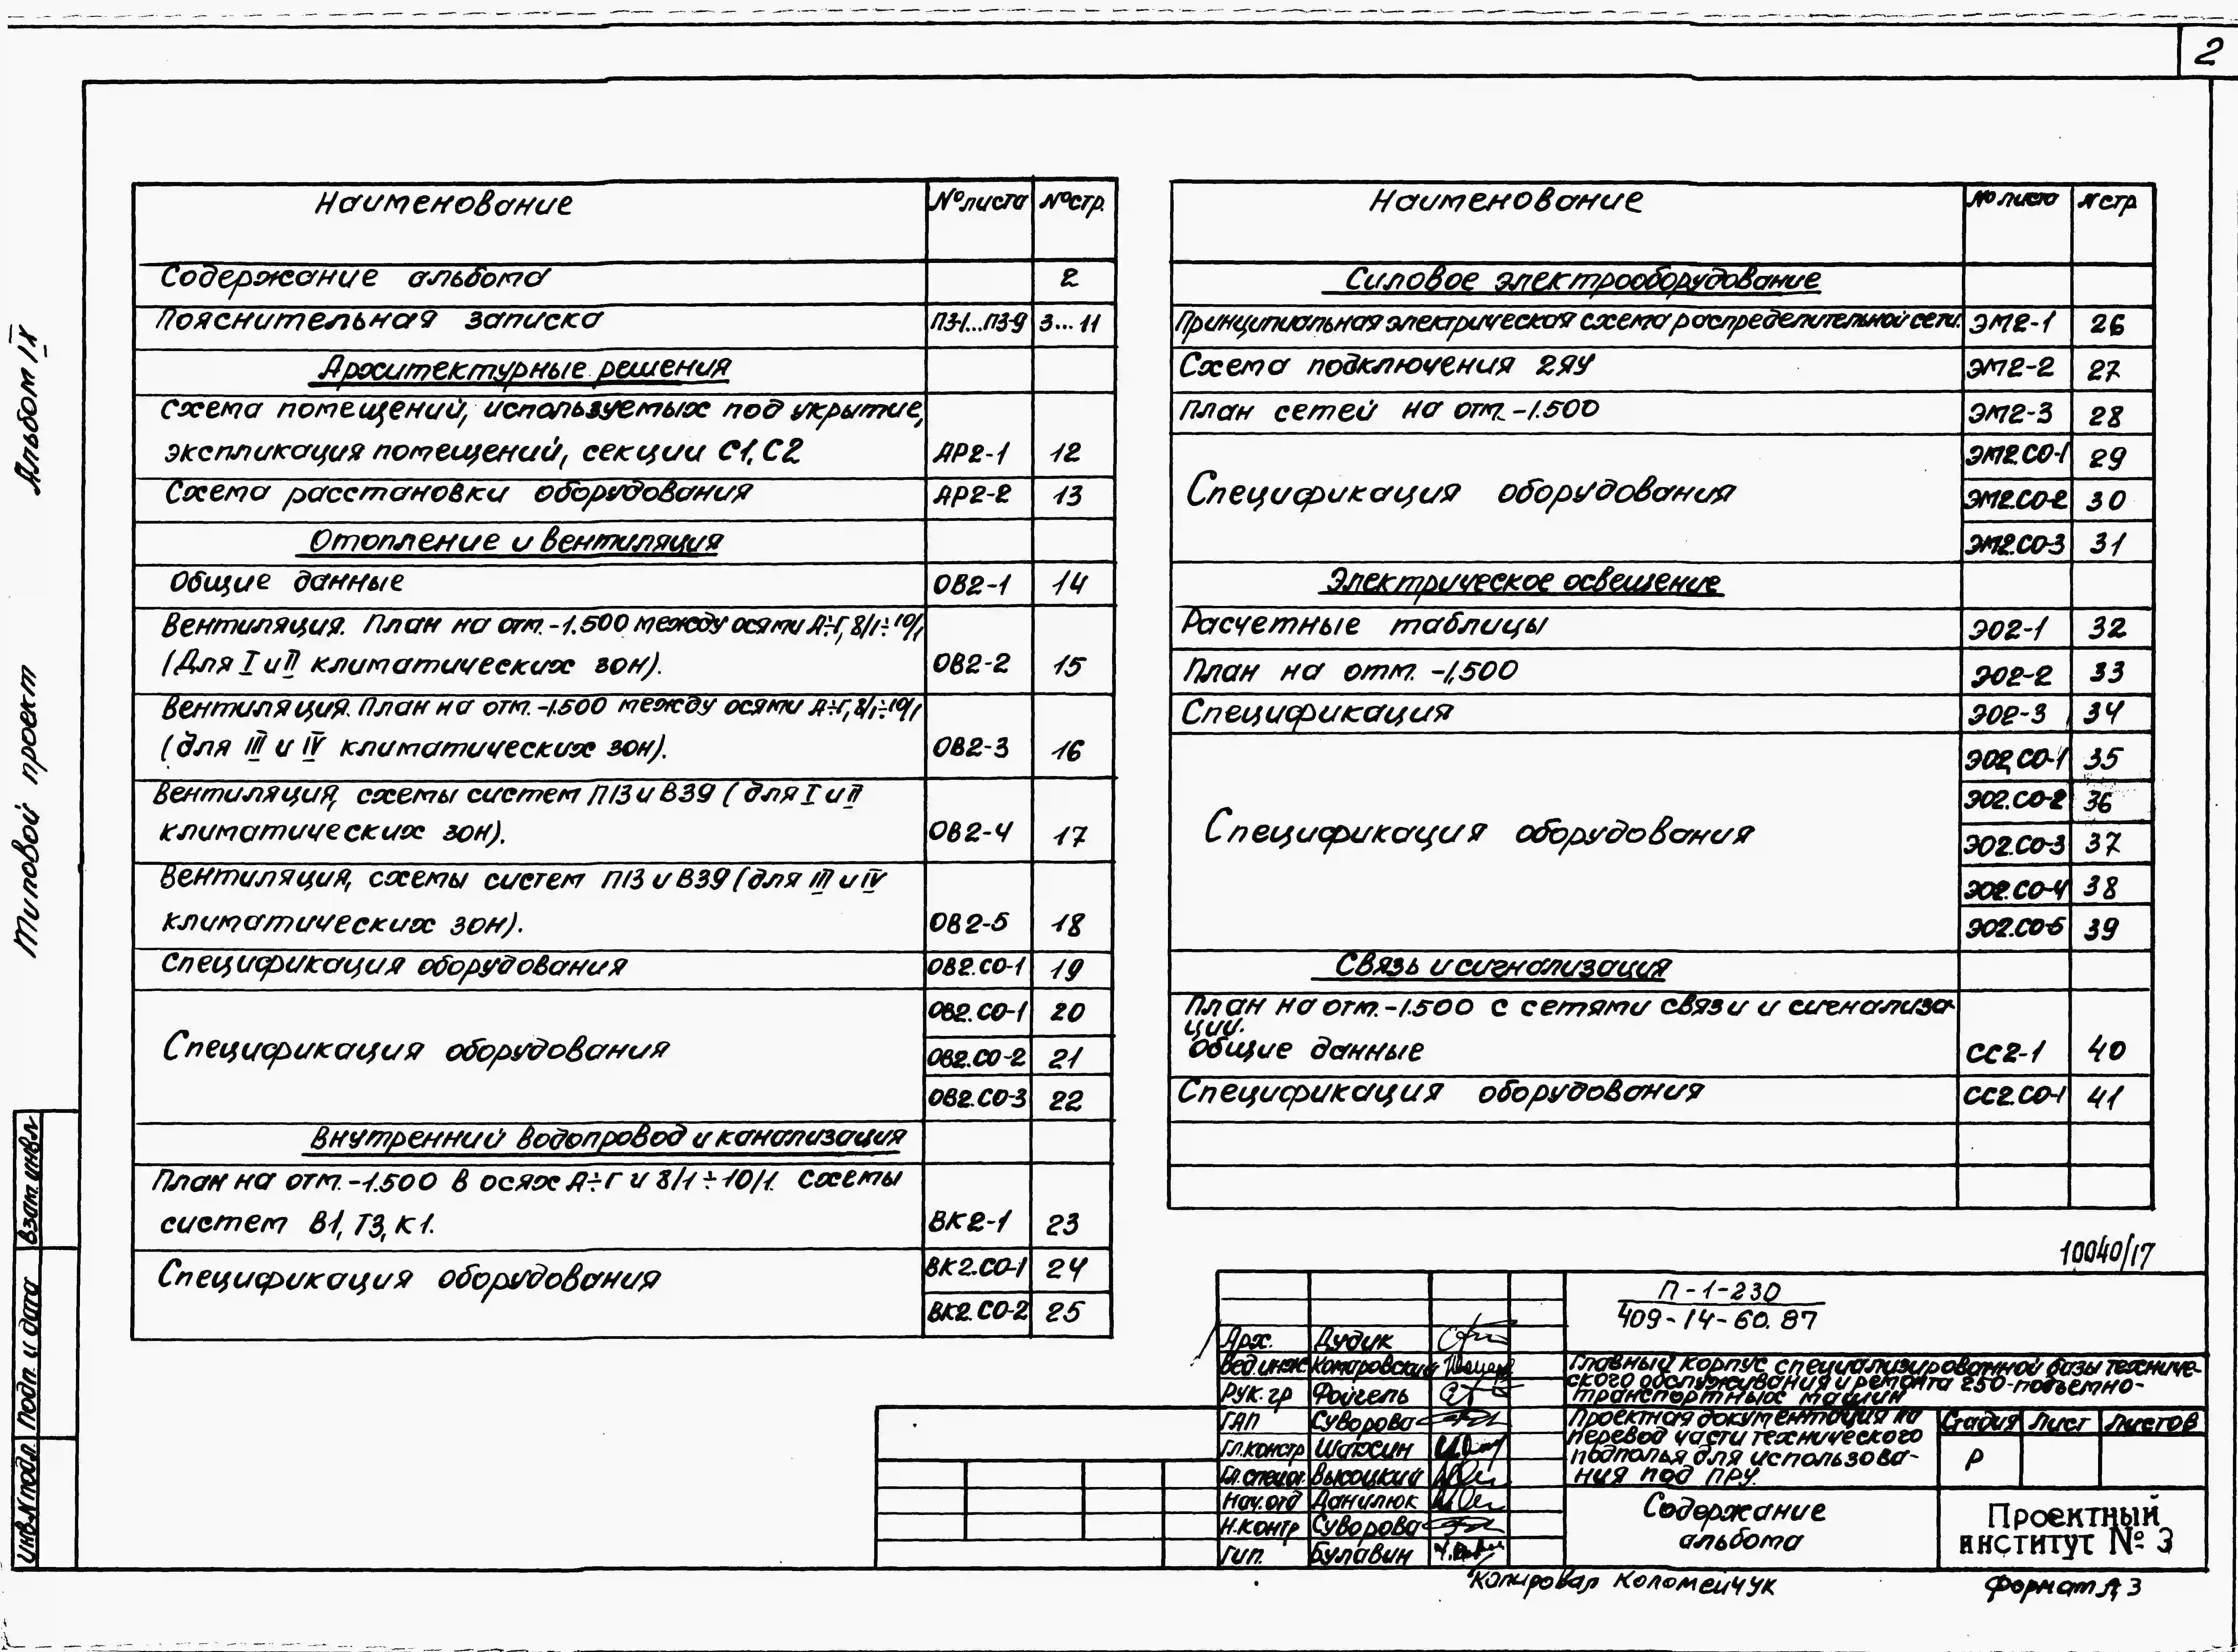 2
Альбом IX
Типовой проект
Наименование №листа №стр.
Содержание альбома 2
Пояснительная записка ПЗ-1...ПЗ-9 3...11
Архитектурные решения
Схема помещений, используемых под укрытие,
экспликация помещений, секции С1, С2 АР2-1 12
Схема расстановки оборудования АР2-2 13
Отопление и вентиляция
Общие данные ОВ2-1 14
Вентиляция. План на отм. -1.500 между осями А÷Г, 8/1÷10/1
(Для I и II климатических зон). ОВ2-2 15
Вентиляция. План на отм. -1.500 между осями А÷Г, 8/1÷10/1
(для III и IV климатических зон). ОВ2-3 16
Вентиляция, схемы систем П13 и В39 (для I и II
климатических зон). ОВ2-4 17
Вентиляция, схемы систем П13 и В39 (для III и IV
климатических зон). ОВ2-5 18
Спецификация оборудования ОВ2.СО-1 19
Спецификация оборудования ОВ2.СО-1 20
ОВ2.СО-2 21
ОВ2.СО-3 22
Внутренний водопровод и канализация
План на отм. -1.500 в осях А÷Г и 8/1÷10/1. Схемы
систем В1, Т3, К1. ВК2-1 23
Спецификация оборудования ВК2.СО-1 24
ВК2.СО-2 25
Наименование №листа N стр
Силовое электрооборудование
Принципиальная электрическая схема распределительной сети. ЭМ2-1 26
Схема подключения 2ЯУ ЭМ2-2 27
План сетей на отм. -1.500 ЭМ2-3 28
Спецификация оборудования ЭМ2.СО-1 29
ЭМ2.СО-2 30
ЭМ2.СО-3 31
Электрическое освещение
Расчетные таблицы ЭО2-1 32
План на отм. -1,500 ЭО2-2 33
Спецификация ЭО2-3 34
Спецификация оборудования ЭО2.СО-1 35
ЭО2.СО-2 36
ЭО2.СО-3 37
ЭО2.СО-4 38
ЭО2.СО-5 39
Связь и сигнализация
План на отм. -1.500 с сетями связи и сигнализа-
ции.
Общие данные СС2-1 40
Спецификация оборудования СС2.СО-1 41
10040/17
П-1-230
409-14-60.87
Арх. Дудик
Вед.инж Комаровский
Рук.гр Фойгель
ГАП Суворова
Гл.констр Шахсин
Гл.спец. Высоцкий
Нач.отд Данилюк
Н.контр Суворова
Гип. Булавин
Главный корпус специализированной базы техниче-
ского обслуживания и ремонта 250-подъемно-
транспортных машин
Проектная документация на
перевод части технического
подполья для использова-
ния под ПРУ.
Стадия Лист Листов
Р
Содержание
альбома
Проектный
институт № 3
Копировал Коломейчук
Формат А3
Взам.инв.N
Подп. и дата
Инв.N подл.